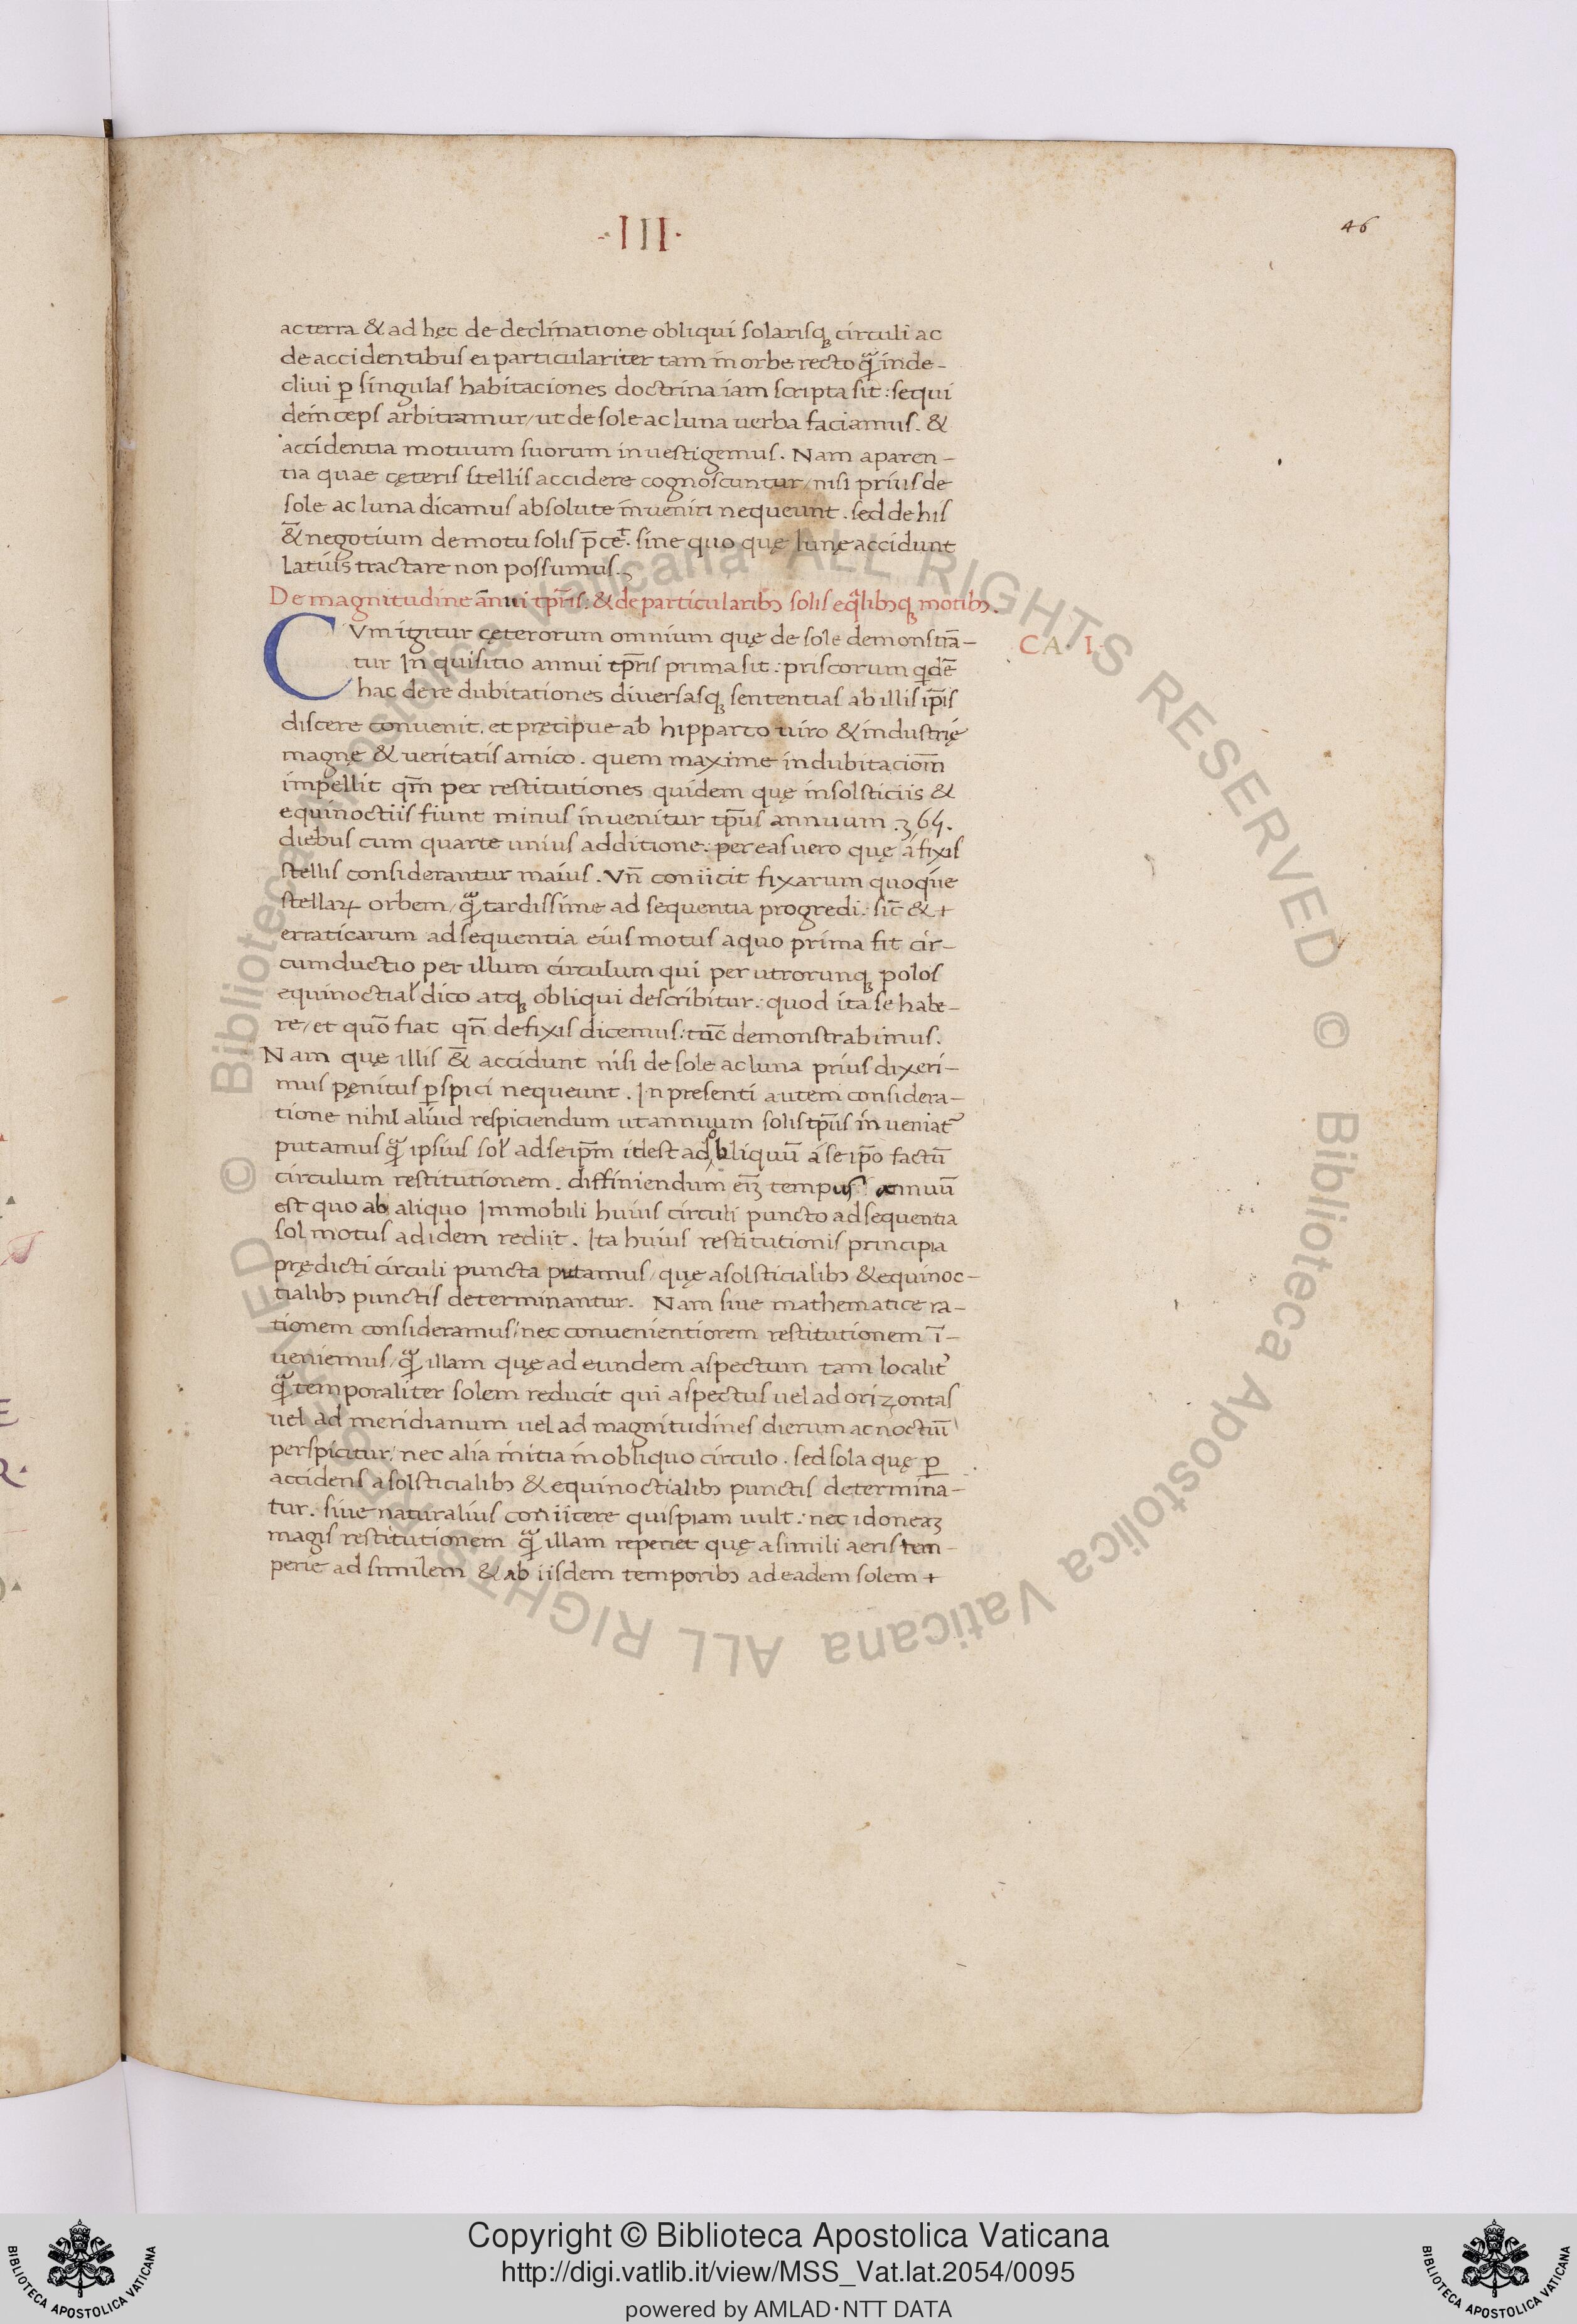 ·III·
46
ac terra & ad hęc de declinatione obliqui solarisq; circuli ac
de accidentibus ei particulariter tam in orbe recto q̃ in de-
cliui ꝑ singulas habitaciones doctrina iam scripta sit: sequi
deinceps arbitramur/ ut de sole ac luna uerba faciamus. &
accidentia motuum suorum inuestigemus. Nam aparen-
tia quae cęteris stellis accidere cognoscuntur/ nisi prius de
sole ac luna dicamus absolute inueniri nequeunt. sed de his
&̃ negotium de motu solis p̃cet̃. sine quo quę lunę accidunt
Latius tractare non possumus.
De magnitudine ãnui tp̃ris: & de particularibꝫ solis eq̃libꝫq; motibꝫ.
CA. I.
CVm igitur cęterorum omnium quę de sole demonstrã-
tur Inquisitio annui tp̃ris prima sit: priscorum qdẽ
hac de re dubitationes diuersasq; sententias ab illis ip̃is
discere conuenit. et pręcipue ab hipparco uiro & industrię
magnę & ueritatis amico. quem maxime in dubitaciom̃
impellit qm̃ per restitutiones quidem quę in solsticiis &
equinoctiis fiunt minus inuenitur tp̃us annuum .365.
diebus cum quarte unius additione: per eas uero quę á fixis
stellis considerantur maius. Vñ coniicit fixarum quoque
stellaꝝ orbem/ q̃ tardissime ad sequentia progredi: sic̃ & +
erraticarum ad sequentia eius motus a quo prima fit cir-
cumductio per illum circulum qui per utrorunq; polos
equinoctial̛ dico atq; obliqui describitur: quod ita se habe-
re/ et quõ fiat qñ de fixis dicemus: tũc demonstrabimus.
Nam quę illis &̃ accidunt nisi de sole ac luna prius dixeri-
mus pęnitus ꝑspici nequeunt. In presenti autem considera-
tione nihil aliud respiciendum ut annuum solis tp̃us inueniat᷑
putamus q̃ ipsius sol̛ ad seip̃m idest ad obliquũ á se ip̃o factũ
circulum restitutionem. diffiniendum eiꝫ tempus annuũ
est quo ab aliquo Immobili huius circuli puncto ad sequentia
sol motus ad idem rediit. Ita huius restitutionis principia
prędicti circuli puncta putamus/ quę a solsticialibꝫ & equinoc-
tialibꝫ punctis determinantur. Nam siue mathematice ra-
tionem consideramus/ nec conuenientiorem restitutionem ĩ-
ueniemus/ q̃ illam quę ad eundem aspectum tam localit᷑
q̃ temporaliter solem reducit qui aspectus uel ad orizontas
uel ad meridianum uel ad magnitudines dierum ac noctiũ
perspicitur: nec alia initia in obliquo circulo. sed sola quę ꝑ
accidens a solsticialibꝫ & equinoctialibꝫ punctis determina-
tur. siue naturalius coniicere quispiam uult: nec idoneaꝫ
magis restitutionem q̃ illam reperiet quę a simili aeris tem-
perie ad similem & ab iisdem temporibꝫ ad eadem solem +
Copyright © Biblioteca Apostolica Vaticana
http://digi.vatlib.it/view/MSS_Vat.lat.2054/0095
powered by AMLAD·NTT DATA
BIBLIOTECA APOSTOLICA VATICANA
BIBLIOTECA APOSTOLICA VATICANA
© Biblioteca Apostolica Vaticana ALL RIGHTS RESERVED © Biblioteca Apostolica Vaticana ALL RIGHTS RESERVED